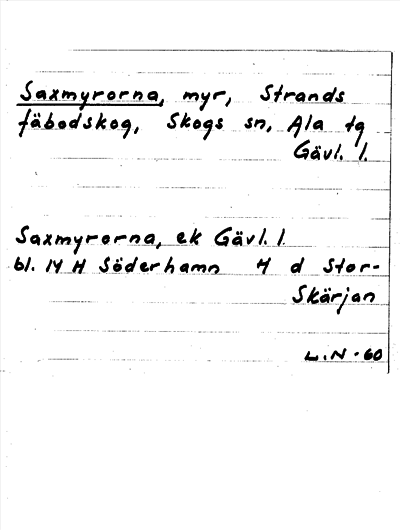 Saxmyrorna, myr, Strands
fäbodskog, Skogs sn, Ala tg
Gävl. l.
Saxmyrorna, ek Gävl. l.
bl. 14 H Söderhamn 4 d Stor-
Skärjan
L.N-60